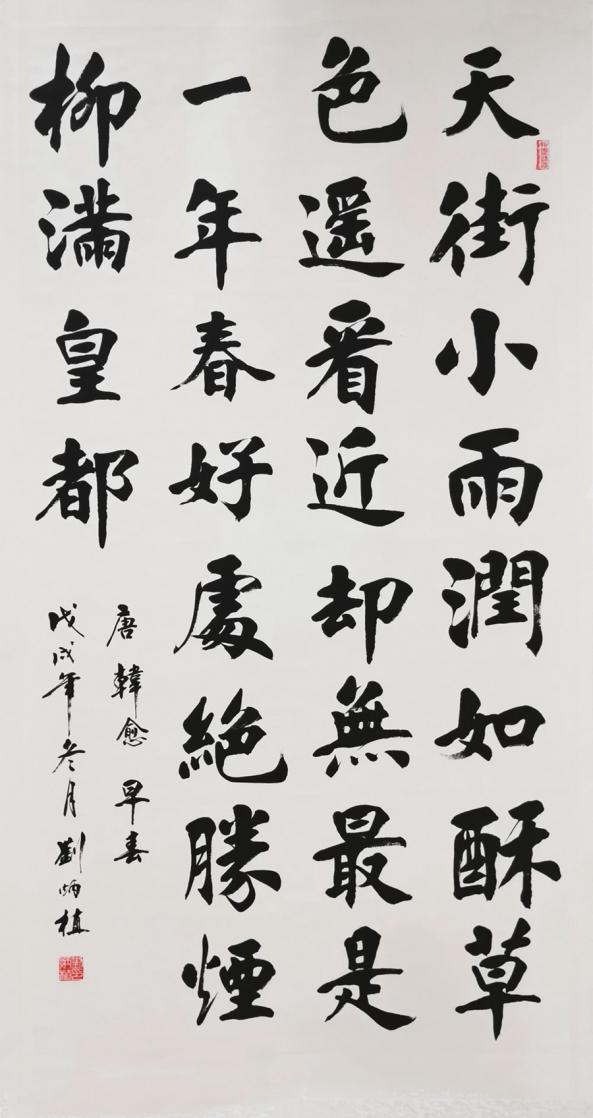 天街小雨潤如酥草
色遥看近却無最是
一年春好處絕勝煙
柳滿皇都
唐韓愈早春
戊戌年冬月劉炳植